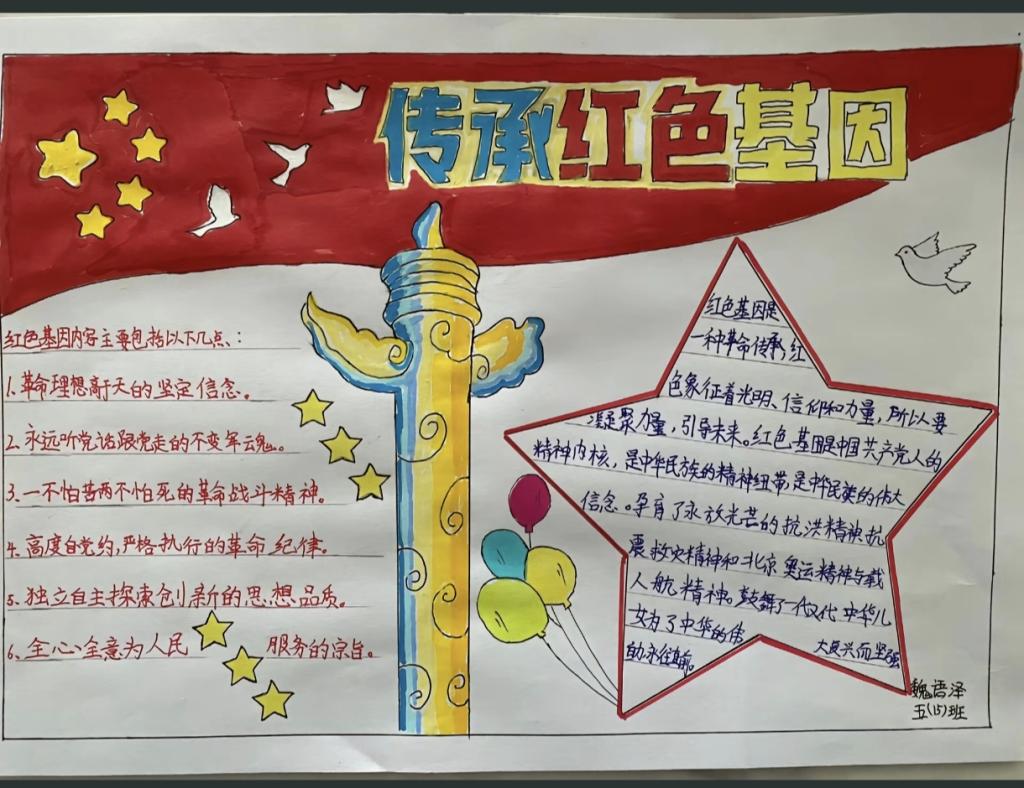 传承红色基因
红色基因内容主要包括以下几点、:
1.革命理想高于天的坚定信念。
2.永远听党话跟党走的不变军魂。
3.一不怕苦两不怕死的革命战斗精神。
4.高度自觉约,严格执行的革命纪律。
5.独立自主探索创新的思想品质。
6、全心全意为人民 服务的宗旨。
红色基因是
一种革命传承,红
色象征着光明、信仰和力量,所以要
凝聚力量,引导未来。红色基因是中国共产党人的
精神内核,是中华民族的精神纽带,是中华民族的伟大
信念。孕育了永放光芒的抗洪精神抗
震救灾精神和北京奥运精神与载
人航精神。鼓舞了一代又代中华儿
女为了中华的伟 大复兴而坚强
的永往
魏语泽
五(15)班